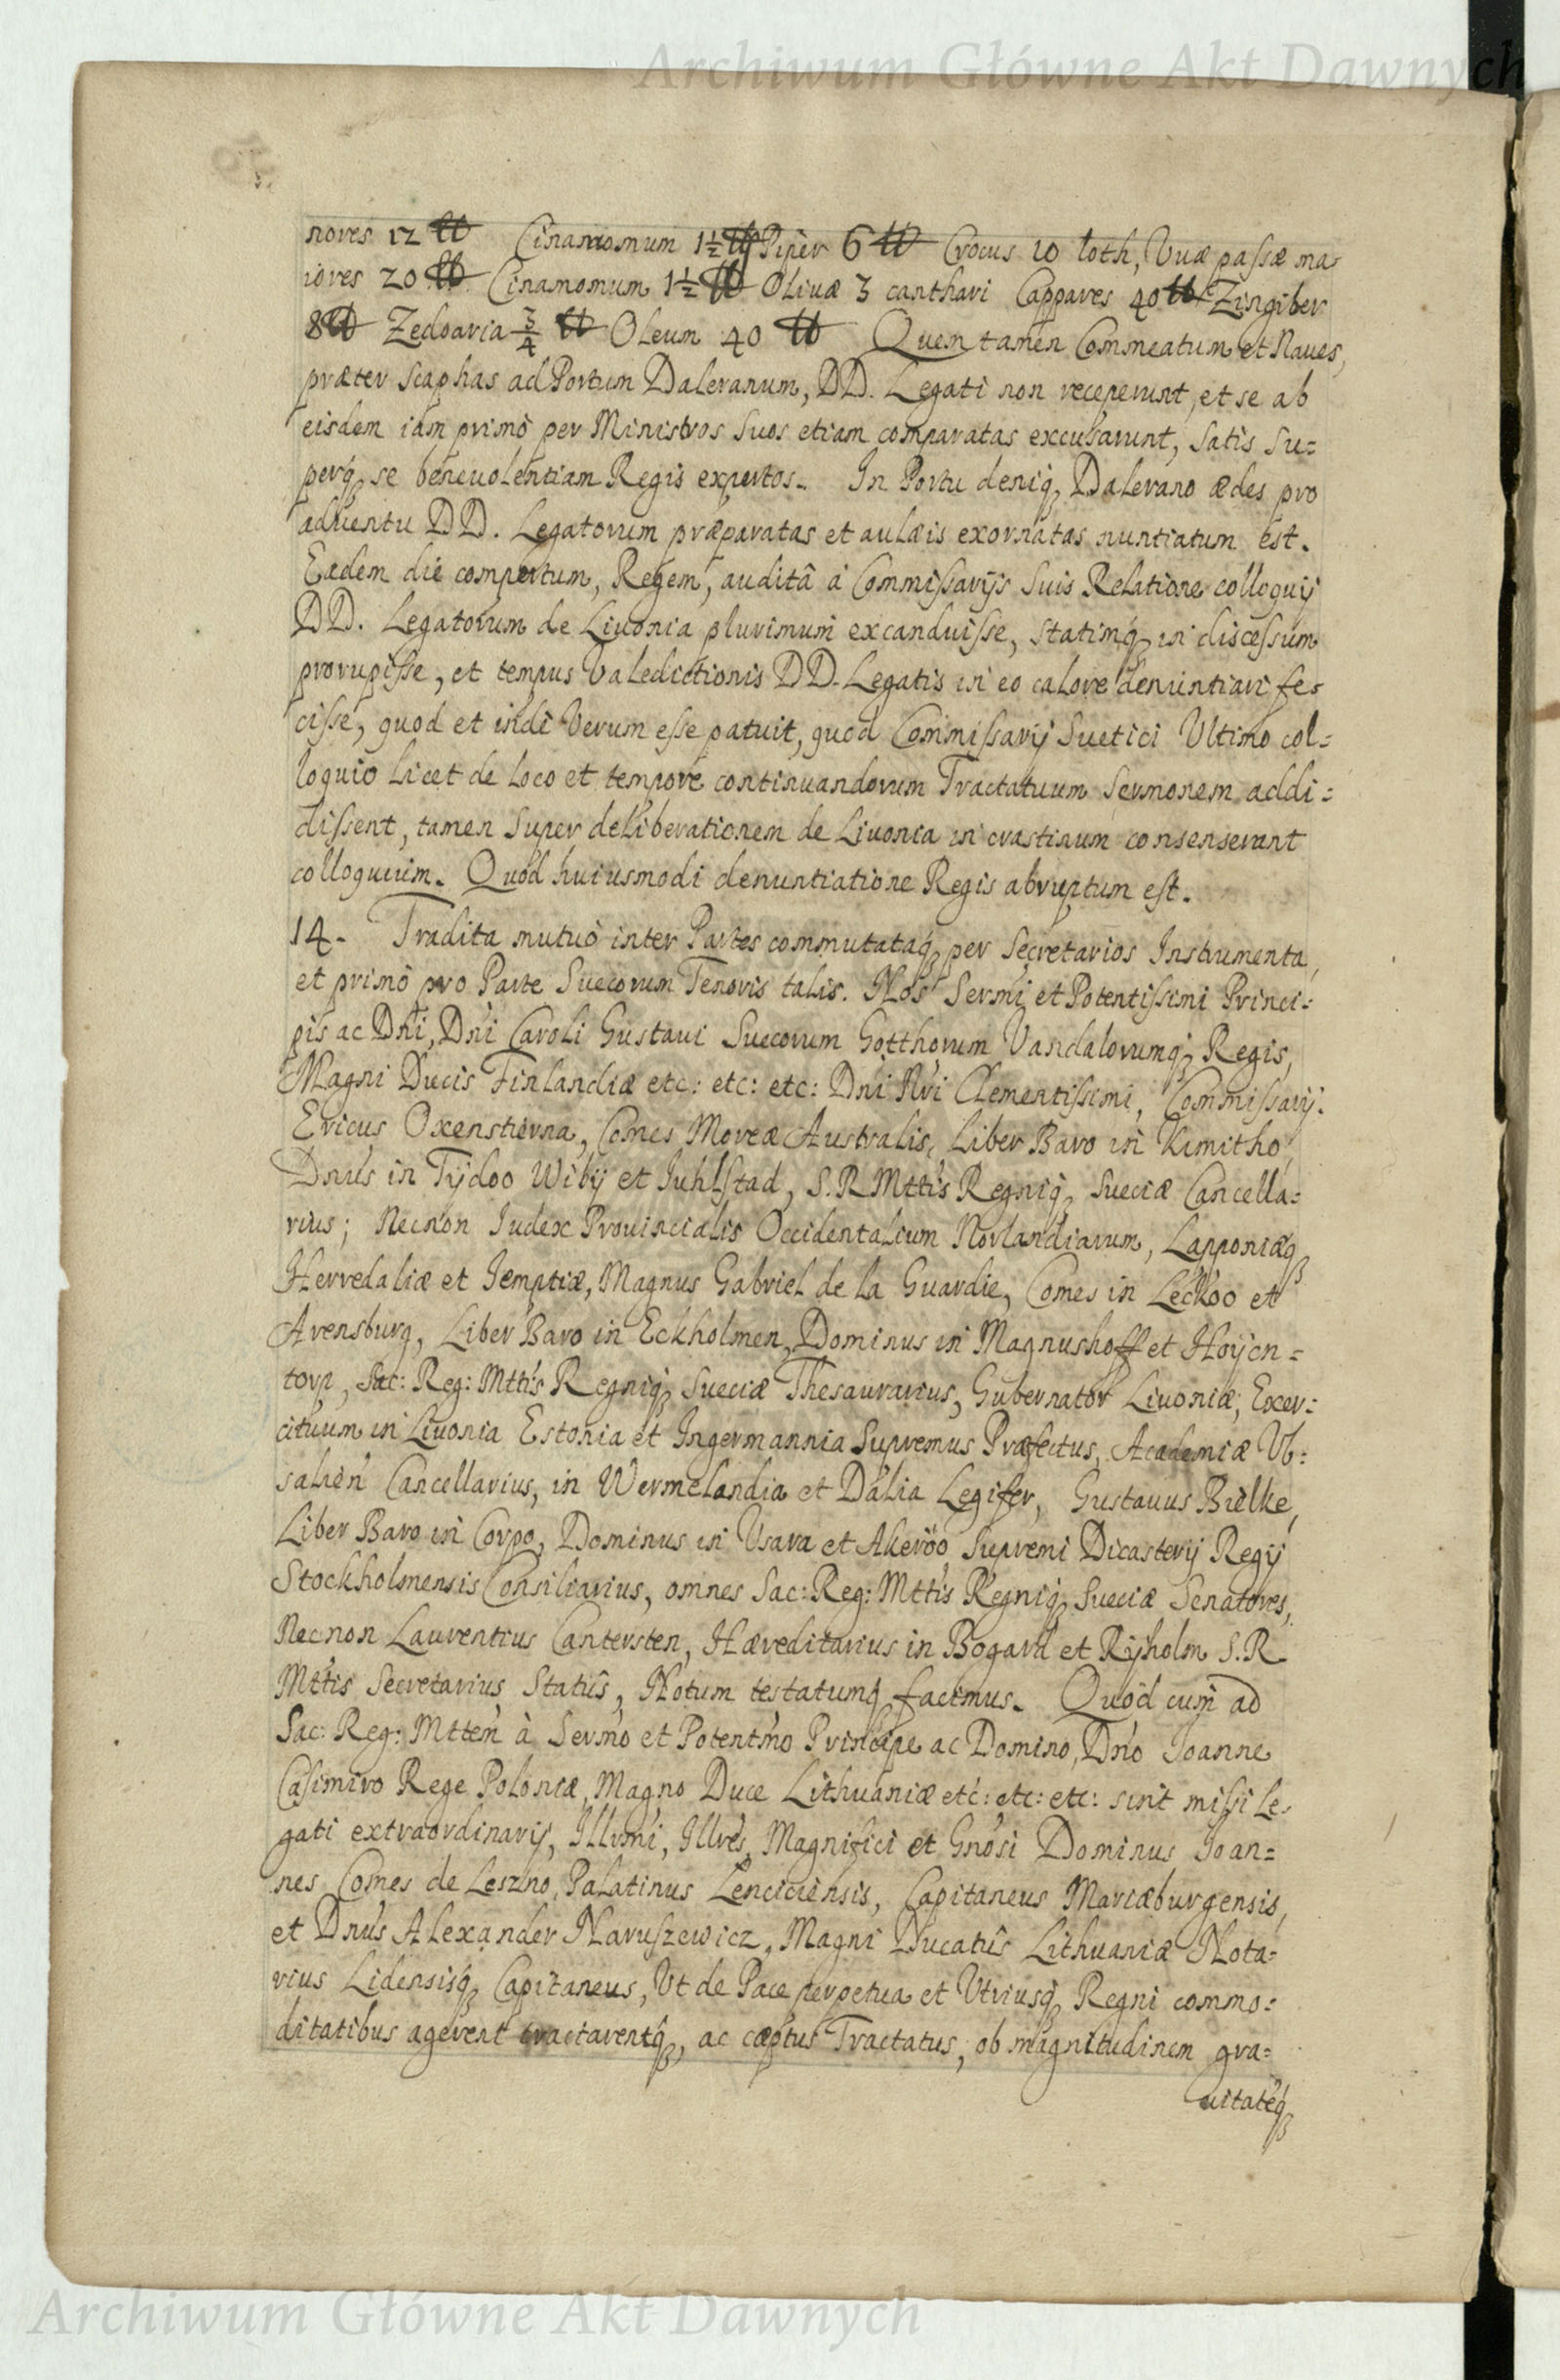 Archiwum Główne Akt Dawnych
nores 12 ℔ Cinamomum 1½ ℔ Piper 6 ℔ Crocus 10 loth, Vuæ passæ ma-
iores 20 ℔ Cinamomum 1½ ℔ Olivæ 3 canthari Cappares 40 ℔ Zingiber
8 ℔ Zedoaria ¾ ℔ Oleum 40 ℔ Quem tamen Commeatum et Naues,
præter scaphas ad Portum Daleranum, DD. Legati non receperunt, et se ab
eisdem iam primò per Ministros suos etiam comparatas excusarunt, satis su=
perq, se beneuolentiam Regis expertos. In Portu deniq, Dalerano ædes pro
aduentu DD. Legatorum præparatas et aulæis exornatas nuntiatum est.
Eædem die compertum, Regem, auditâ à Commissarijs suis Relatione colloquij
DD. Legatorum de Liuonia plurimum excanduisse, statimq, in discessum
prorupisse, et tempus Valedictionis DD. Legatis in eo calore denuntiari fe-
cisse, quod et indè Verum esse patuit, quod Commissarij Suetici Vltimo col=
loquio licet de loco et tempore continuandorum Tractatuum sermonem addi=
dissent, tamen super deliberationem de Liuonia in crastinum consenserant
colloquium. Quod huiusmodi denuntiatione Regis abruptum est.
14. Tradita mutuò inter Partes commutataq, per Secretarios Instrumenta,
et primò pro Parte Suecorum Tenoris talis. Nos Sermi et Potentissimi Princi=
pis ac Dni, Dni Caroli Gustaui Suecorum Gotthorum Vandalorumq, Regis,
Magni Ducis Finlandiæ etc: etc: etc: Dni Nri Clementissimi, Commissarij.
Ericus Oxenstierna, Comes Moreæ Australis, Liber Baro in Kimitho,
Dnus in Tijdoo Wibij et Juhlstad, S.R Mttis Regniq, Sueciæ Cancella=
rius; Necnon Iudex Prouincialis Occidentalium Norlandiarum, Lapponiæq,
Herredaliæ et Iemptiæ, Magnus Gabriel de la Guardie, Comes in Leckoo et
Arensburg, Liber Baro in Eckholmen, Dominus in Magnushoff et Hoijen=
torp, Sac: Reg: Mttis Regniq, Sueciæ Thesaurarius, Gubernator Liuoniæ, Exer=
cituum in Liuonia Estonia et Ingermannia Supremus Præfectus, Academiæ Vb=
salien Cancellarius, in Wermelandia et Dalia Legifer, Gustauus Bielke,
Liber Baro in Corpo, Dominus in Vsara et Akeröo, Supremi Dicasterij Regij
Stockholmensis Consiliarius, omnes Sac: Reg: Mttis Regniq, Sueciæ Senatores,
Necnon Laurentius Cantersten, Hæreditarius in Bogard et Rijholm S.R
Mttis Secretarius Statûs, Notum testatumq facimus. Quòd cum ad
Sac: Reg: Mttem à Sermo et Potentmo Principe ac Domino, Dno Joanne
Casimiro Rege Poloniæ, Magno Duce Lithuaniæ etc: etc: etc: sint missi Le-
gati extraordinarij, Illrmi, Illres, Magnifici et Gnosi Dominus Joan=
nes Comes de Leszno, Palatinus Lenciciensis, Capitaneus Mariæburgensis,
et Dnus Alexander Naruszewicz, Magni Ducatûs Lithuaniæ Nota=
rius Lidensisq, Capitaneus, Vt de Pace perpetua et Vtriusq, Regni commo=
ditatibus agerent tractarentq, ac cæptus Tractatus, ob magnitudinem gra=
uitateq,
Archiwum Główne Akt Dawnych